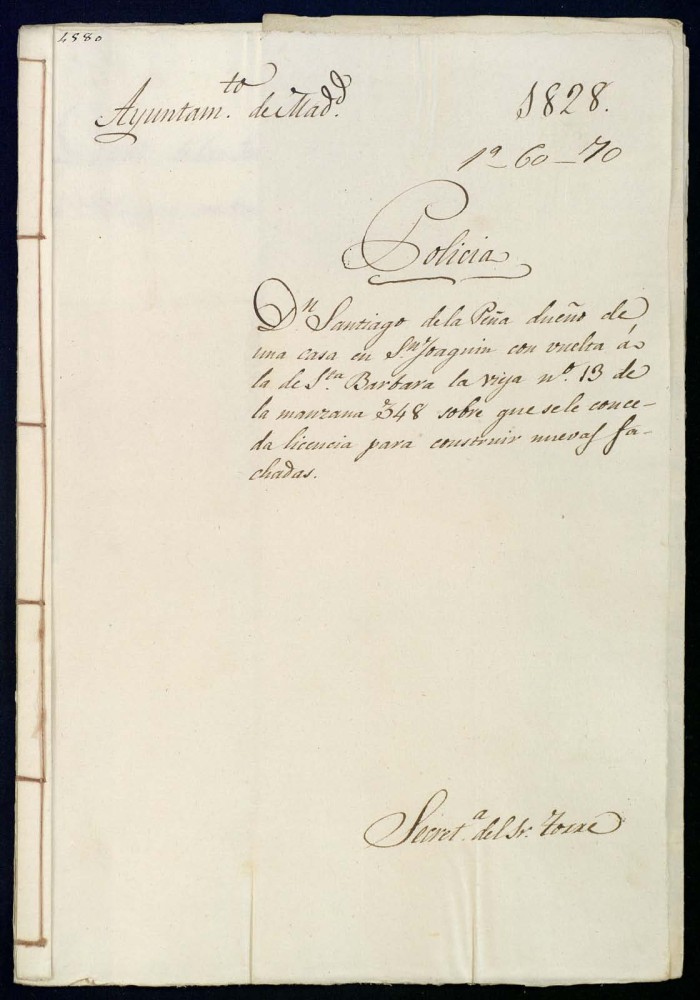 1880
Ayuntam.to de Madd.
1828.
1ª-60-70
Policia
Dn. Santiago de la Peña dueño de
una casa en Sn. Joaquin con vuelta á
la de Sta. Barbara la vieja nº. 13 de
la manzana 348 sobre que se le conce-
da licencia para construir nuevas fa-
chadas.
Secret.a del Sr.